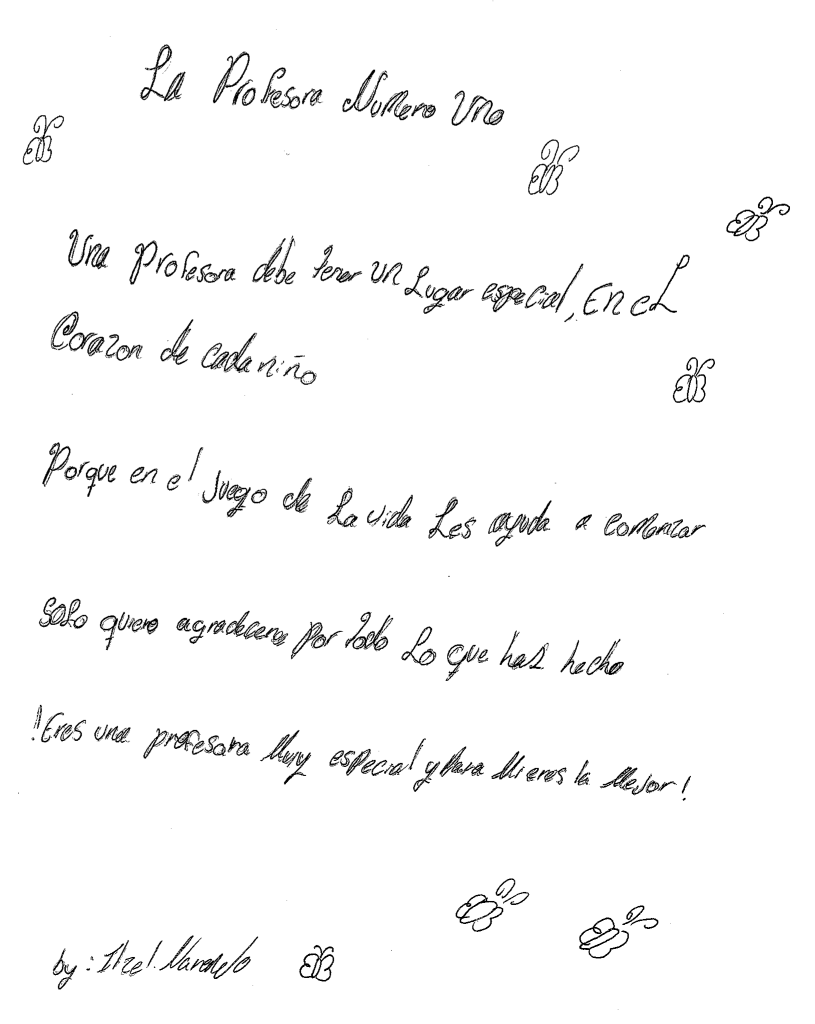 La Profesora Numero Uno
Una Profesora debe tener un Lugar especial, En el
Corazon de cada niño
Porque en el Juego de La vida Les ayuda a comenzar
Solo quiero agradecerte por todo Lo que haz hecho
!Eres una profesora Muy especial y Para Mi eres la Mejor!
by: Itzel